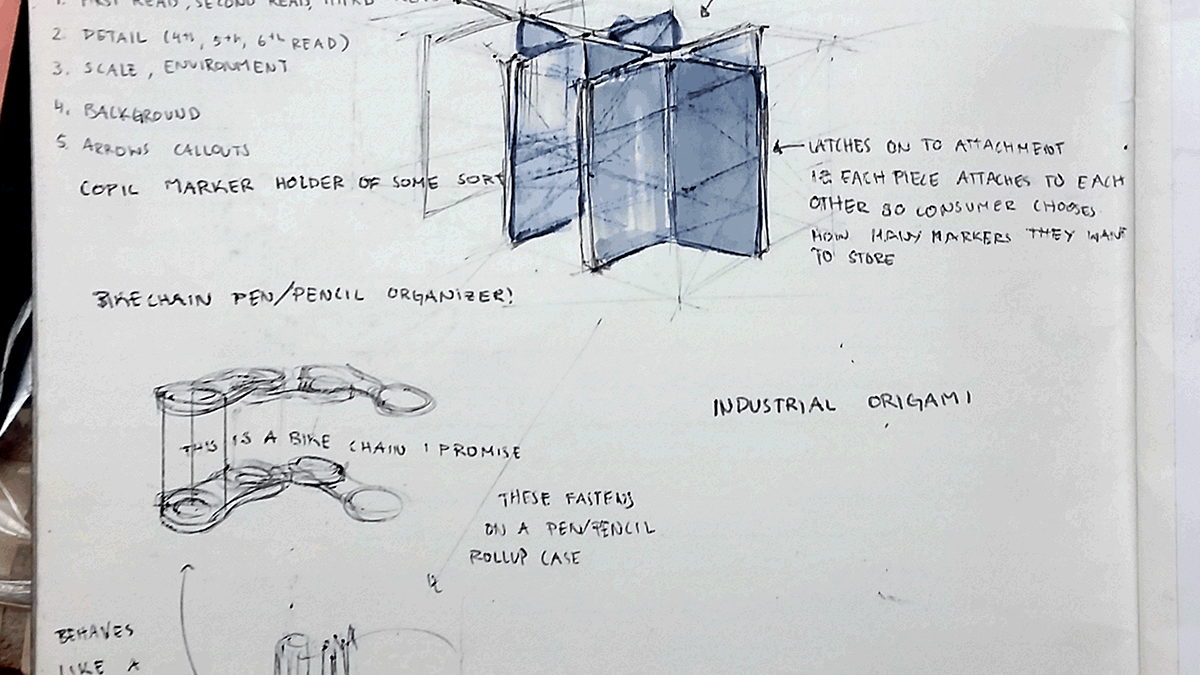 1. FIRST READ, SECOND READ, THIRD READ
2. DETAIL (4th, 5th, 6th READ)
3. SCALE, ENVIRONMENT
4. BACKGROUND
5. ARROWS CALLOUTS
COPIC MARKER HOLDER OF SOME SORT
LATCHES ON TO ATTACHMENT
EACH PIECE ATTACHES TO EACH
OTHER SO CONSUMER CHOOSES
HOW MANY MARKERS THEY WANT
TO STORE
BIKECHAIN PEN/PENCIL ORGANIZER!
INDUSTRIAL ORIGAMI
THIS IS A BIKE CHAIN I PROMISE
THESE FASTENS
ON A PEN/PENCIL
ROLLUP CASE
BEHAVES
LIKE A